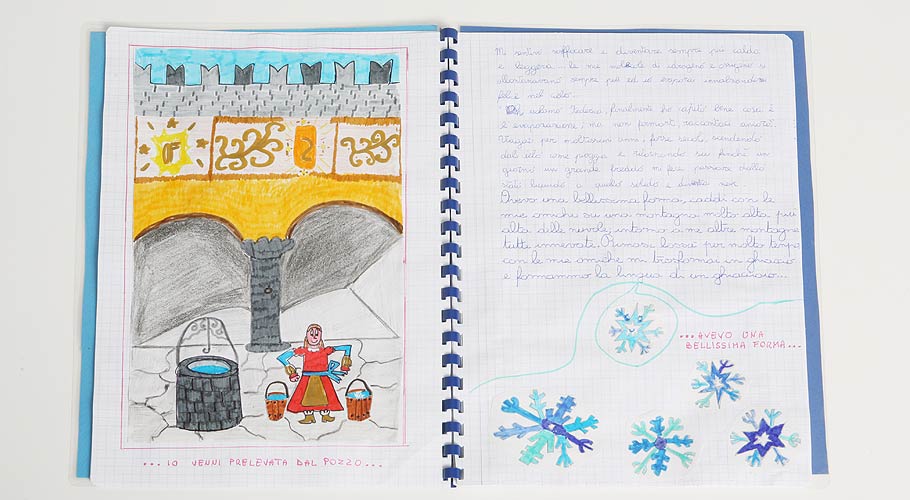 ... IO VENNI PRELEVATA DAL POZZO ...
Mi sentivo soffocare e diventare sempre più calda
e leggera. le mie molecole di idrogeno e ossigeno si
allontanavano sempre più ed io evaporai innalzandomi
felice nel cielo.
finalmente ho capito bene cosa è
l'evaporazione, ma non fermarti, raccontaci ancora".
Viaggiai per moltissimi anni, forse secoli, scendendo
dal cielo come pioggia e risalendo su finché un
giorno un grande freddo mi fece passare dallo
stato liquido a quello solido e diventai neve.
Avevo una bellissima forma, caddi con le
mie amiche su una montagna molto alta più
alta delle nuvole, intorno a me altre montagne
tutte innevate. Rimasi lassù per molto tempo
con le mie amiche mi trasformai in ghiaccio
e formammo la lingua di un ghiacciaio...
... AVEVO UNA
BELLISSIMA FORMA...